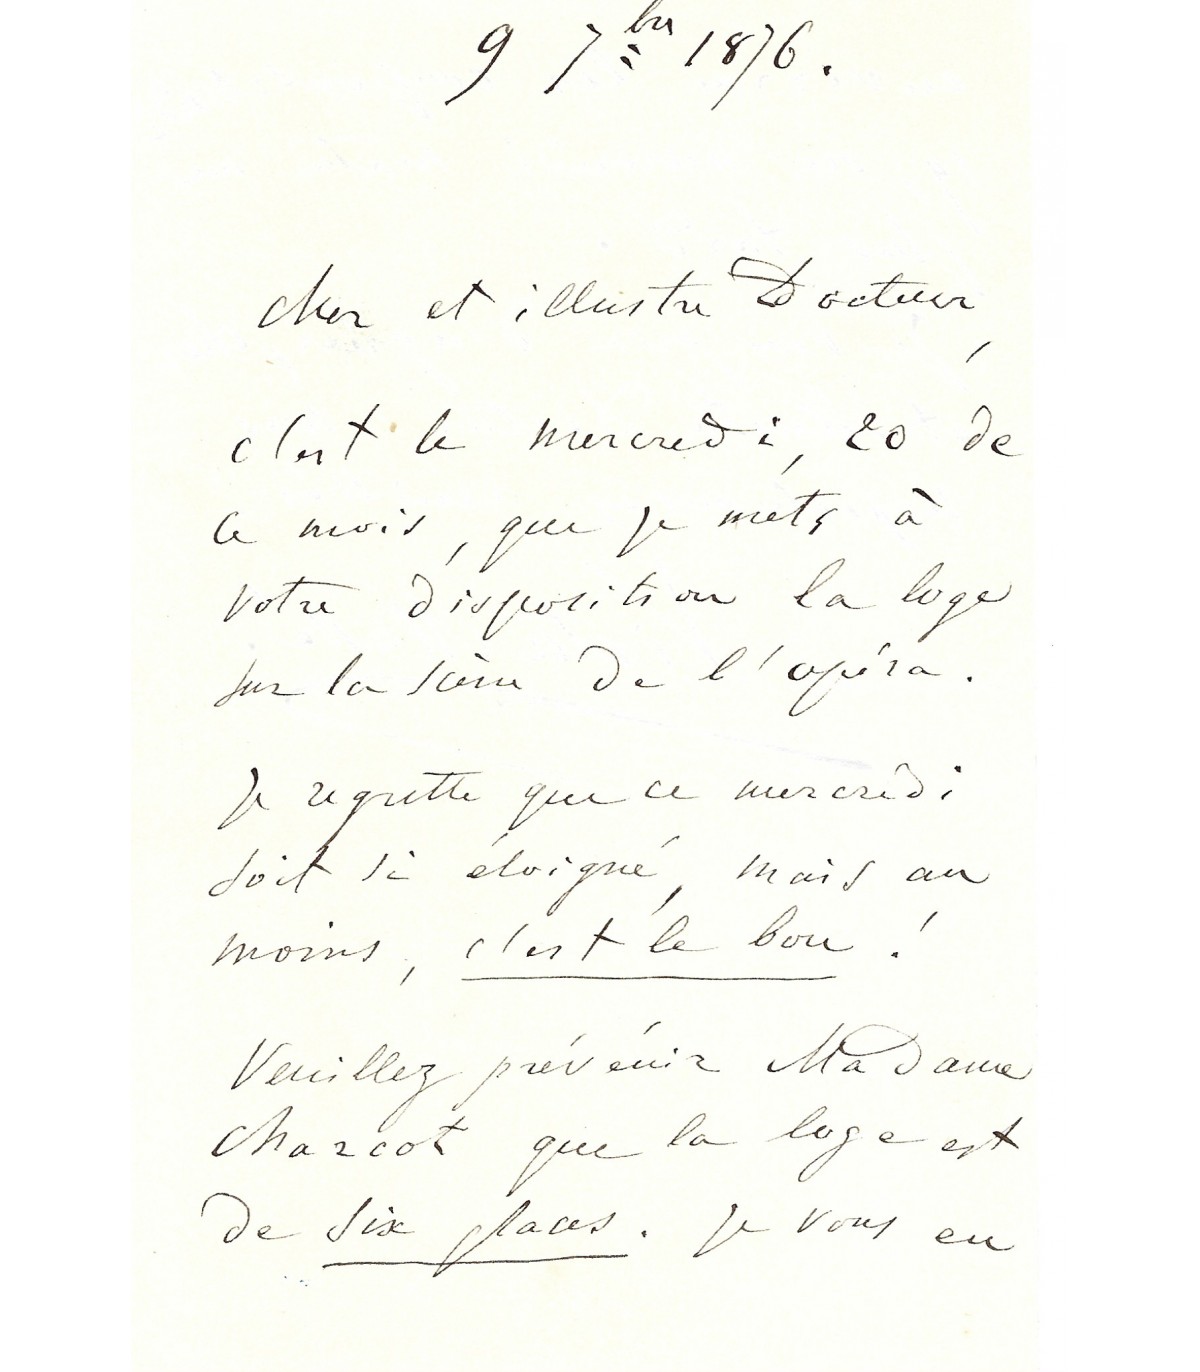 9 7bre 1876.
Cher et illustre Docteur,
c'est le mercredi, 20 de
ce mois, que je mets à
votre disposition la loge
sur la scène de l'opéra.
Je regrette que ce mercredi
soit si éloigné, mais au
moins, c'est le bon !
Veuillez prévénir Madame
Charcot que la loge est
de six places. Je vous en